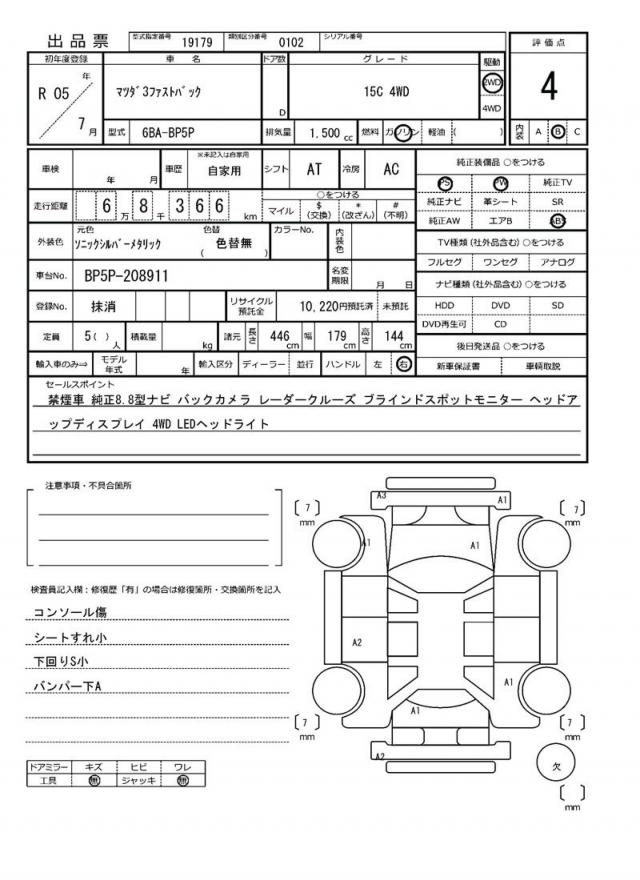 出品票 型式指定番号 19179 類別区分番号 0102 シリアル番号
評価点
4
内装 A B C
初年度登録 車 名 ドア数 グレード 駆動
R 05 年 7 月
マツダ3ファストバック
D
15C 4WD
2WD
4WD
型式 6BA-BP5P 排気量 1,500 cc 燃料 ガソリン 軽油 ( )
車検 年 月 車歴 ※未記入は自家用 自家用 シフト AT 冷房 AC
走行距離 6 万 8 千 3 6 6 km
○をつける
マイル $(交換) *(改ざん) #(不明)
外装色 元色 ソニックシルバーメタリック 色替 ( 色替無 ) カラーNo. 内装色
車台No. BP5P-208911 名変期限 月 日
登録No. 抹消 リサイクル預託金 10,220円預託済 未預託
定員 5( ) 人 積載量 kg 諸元 長さ 446 cm 幅 179 cm 高さ 144 cm
輸入車のみ⇒ モデル年式 年 輸入区分 ディーラー 並行 ハンドル 左 右
純正装備品 ○をつける
PS PW 純正TV
純正ナビ 革シート SR
純正AW エアB ABS
TV種類(社外品含む) ○をつける
フルセグ ワンセグ アナログ
ナビ種類(社外品含む) ○をつける
HDD DVD SD
DVD再生可 CD
後日発送品 ○をつける
新車保証書 車輌取説
セールスポイント
禁煙車 純正8.8型ナビ バックカメラ レーダークルーズ ブラインドスポットモニター ヘッドア
ップディスプレイ 4WD LEDヘッドライト
注意事項・不具合箇所
検査員記入欄:修復歴「有」の場合は修復箇所・交換箇所を記入
コンソール傷
シートすれ小
下回りS小
バンパー下A
ドアミラー キズ ヒビ ワレ
工具 無 ジャッキ 無
A3
A1
[ 7 ] mm
[ 7 ] mm
A1
A1
A2
A1
A1
[ 7 ] mm
[ 7 ] mm
A2
欠
[ ] mm